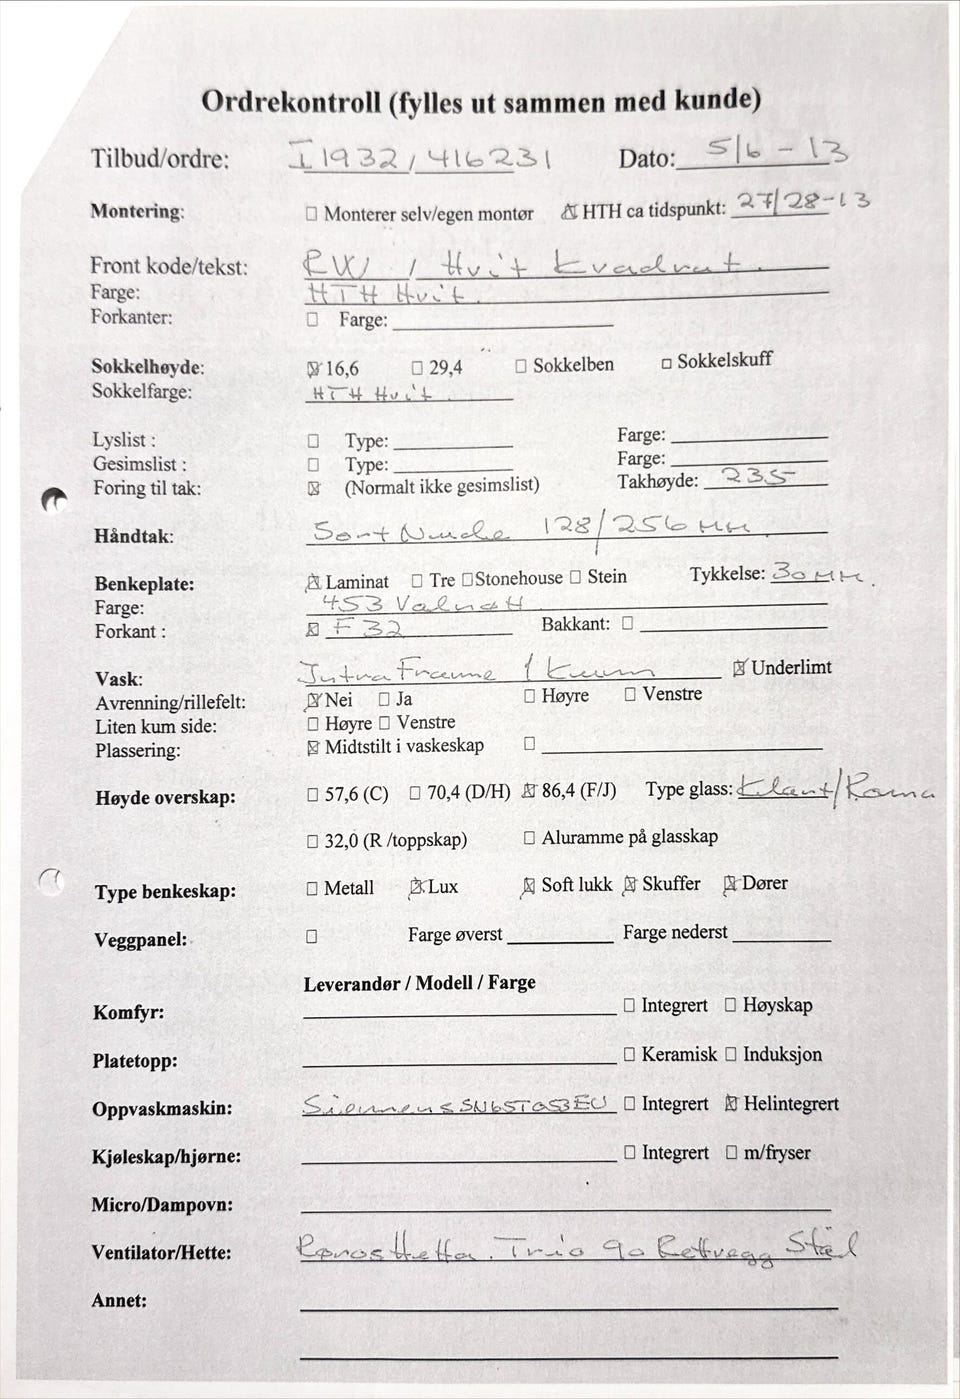 Ordrekontroll (fylles ut sammen med kunde)
Tilbud/ordre: I1932/416231 Dato: 5/6-13
Montering: ☐ Monterer selv/egen montør ☒ HTH ca tidspunkt: 27/28-13
Front kode/tekst: RW / Hvit Kvadrat.
Farge: HTH Hvit.
Forkanter: ☐ Farge:
Sokkelhøyde: ☒ 16,6 ☐ 29,4 ☐ Sokkelben ☐ Sokkelskuff
Sokkelfarge: HTH Hvit.
Lyslist : ☐ Type: Farge:
Gesimslist : ☐ Type: Farge:
Foring til tak: ☒ (Normalt ikke gesimslist) Takhøyde: 235
Håndtak: Sort 128/256 mm
Benkeplate: ☒ Laminat ☐ Tre ☐ Stonehouse ☐ Stein Tykkelse: 30 mm.
Farge: 453 Valnøtt
Forkant : ☒ F32 Bakkant: ☐
Vask: Intra Frame 1 Kum ☒ Underlimt
Avrenning/rillefelt: ☒ Nei ☐ Ja ☐ Høyre ☐ Venstre
Liten kum side: ☐ Høyre ☐ Venstre
Plassering: ☒ Midtstilt i vaskeskap ☐
Høyde overskap: ☐ 57,6 (C) ☐ 70,4 (D/H) ☒ 86,4 (F/J) Type glass: Klart/Rama
☐ 32,0 (R /toppskap) ☐ Aluramme på glasskap
Type benkeskap: ☐ Metall ☒ Lux ☒ Soft lukk ☒ Skuffer ☒ Dører
Veggpanel: ☐ Farge øverst Farge nederst
Leverandør / Modell / Farge
Komfyr: ☐ Integrert ☐ Høyskap
Platetopp: ☐ Keramisk ☐ Induksjon
Oppvaskmaskin: Siemens SN65T053EU ☐ Integrert ☒ Helintegrert
Kjøleskap/hjørne: ☐ Integrert ☐ m/fryser
Micro/Dampovn:
Ventilator/Hette: RørosHetta. Trio 90 Rettvegg Stål
Annet: